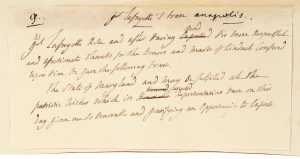 9. gl Lafayette's toast annapolis.
gl Lafayette Rose and after having his most Respectful
and affectionate thanks for the honors and marks of kindness Conferred
upon him He gave the following toast.
The State of Maryland and may the political all the
patriotic Wishes which its Representatives have on this
day given me so honorable and gratifying an Opportunity to Express